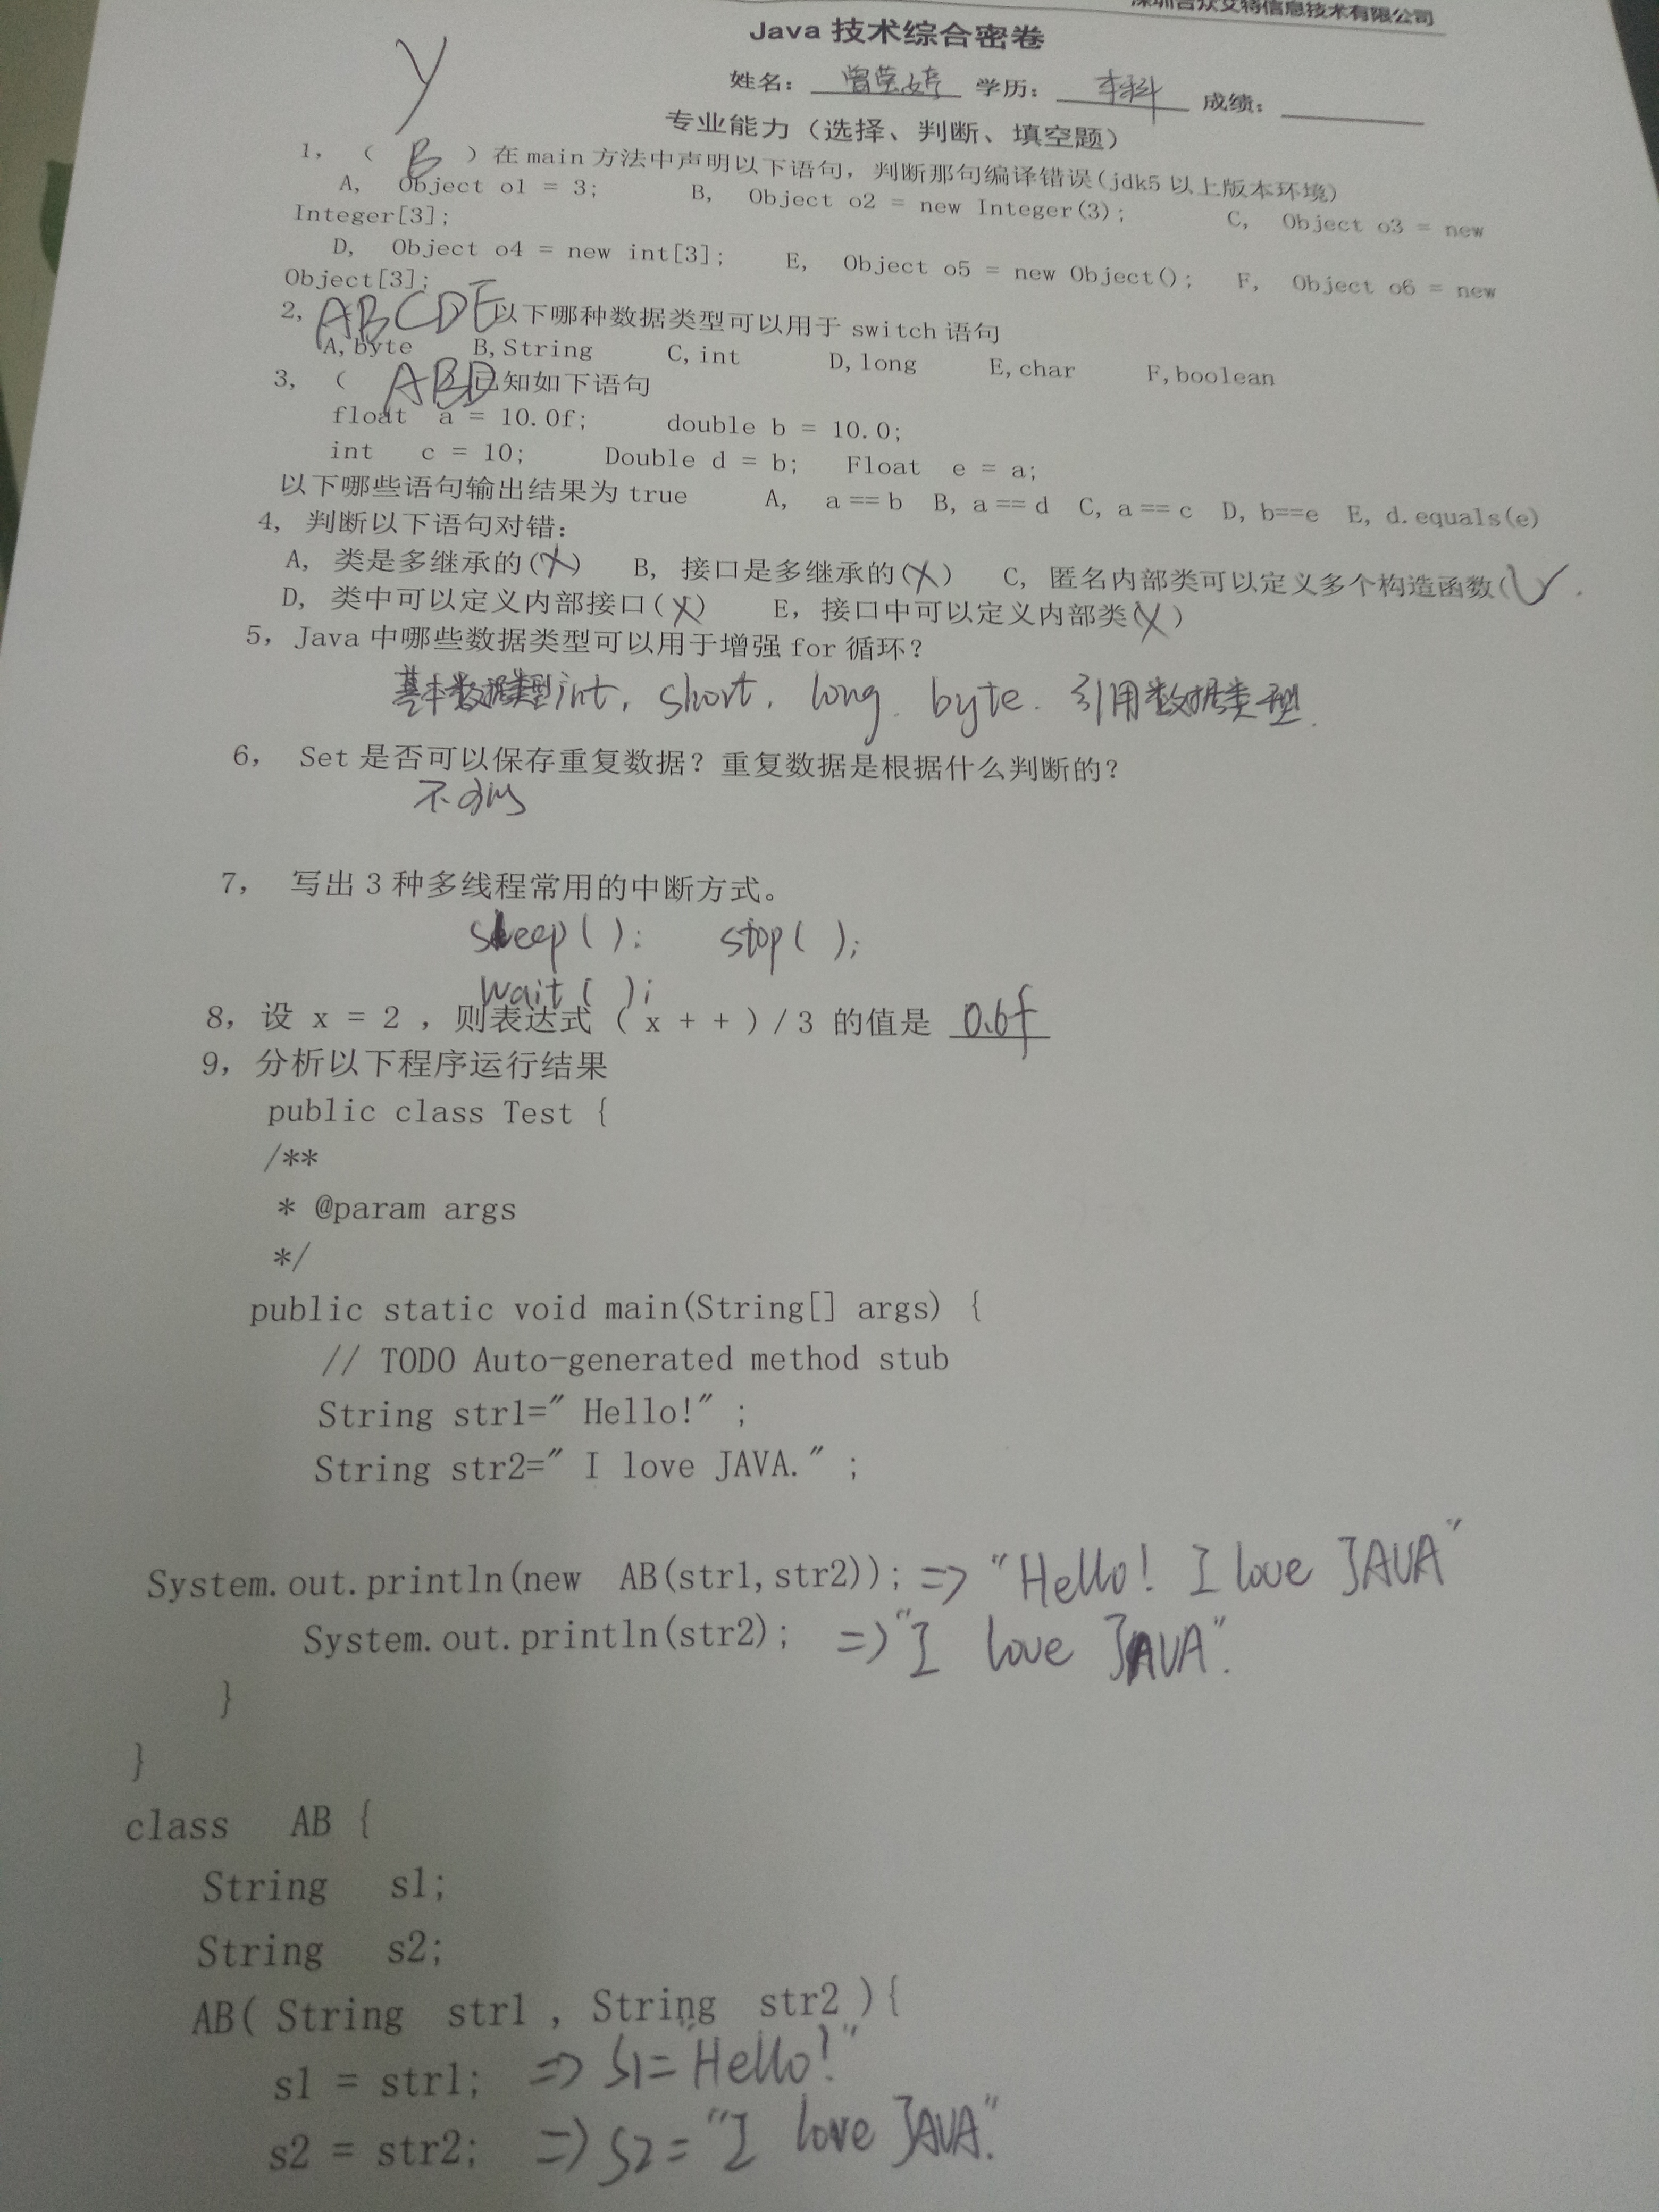 深圳合众艾特信息技术有限公司
Java 技术综合密卷
y
姓名： 曾莹婷 学历： 本科 成绩：
专业能力（选择、判断、填空题）
1，（ B ）在 main 方法中声明以下语句，判断那句编译错误(jdk5 以上版本环境)
A, Object o1 = 3; B, Object o2 = new Integer(3); C, Object o3 = new
Integer[3];
D, Object o4 = new int[3]; E, Object o5 = new Object(); F, Object o6 = new
Object[3];
2, ABCDE 以下哪种数据类型可以用于 switch 语句
A,byte B,String C,int D,long E,char F,boolean
3, （ ABD 已知如下语句
float a = 10.0f; double b = 10.0;
int c = 10; Double d = b; Float e = a;
以下哪些语句输出结果为 true A, a == b B, a == d C, a == c D, b==e E, d.equals(e)
4, 判断以下语句对错：
A, 类是多继承的(X) B, 接口是多继承的(X) C, 匿名内部类可以定义多个构造函数(√.
D, 类中可以定义内部接口(X) E, 接口中可以定义内部类(X)
5, Java 中哪些数据类型可以用于增强 for 循环?
基本数据类型int, short, long. byte. 引用数据类型.
6, Set 是否可以保存重复数据? 重复数据是根据什么判断的?
不可以
7, 写出 3 种多线程常用的中断方式。
sleep( ); stop( );
wait( );
8, 设 x = 2 , 则表达式 ( x + + ) / 3 的值是 0.6f
9, 分析以下程序运行结果
public class Test {
/**
* @param args
*/
public static void main(String[] args) {
// TODO Auto-generated method stub
String str1=" Hello!" ;
String str2=" I love JAVA." ;
System.out.println(new AB(str1,str2)); => "Hello! I love JAVA"
System.out.println(str2); => "I love JAVA".
}
}
class AB {
String s1;
String s2;
AB( String str1 , String str2 ){
s1 = str1; => S1="Hello!"
s2 = str2; => S2="I love JAVA".